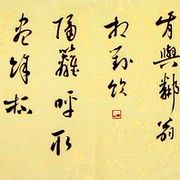 肯與鄰翁
相對飲
隔籬呼取
盡餘杯